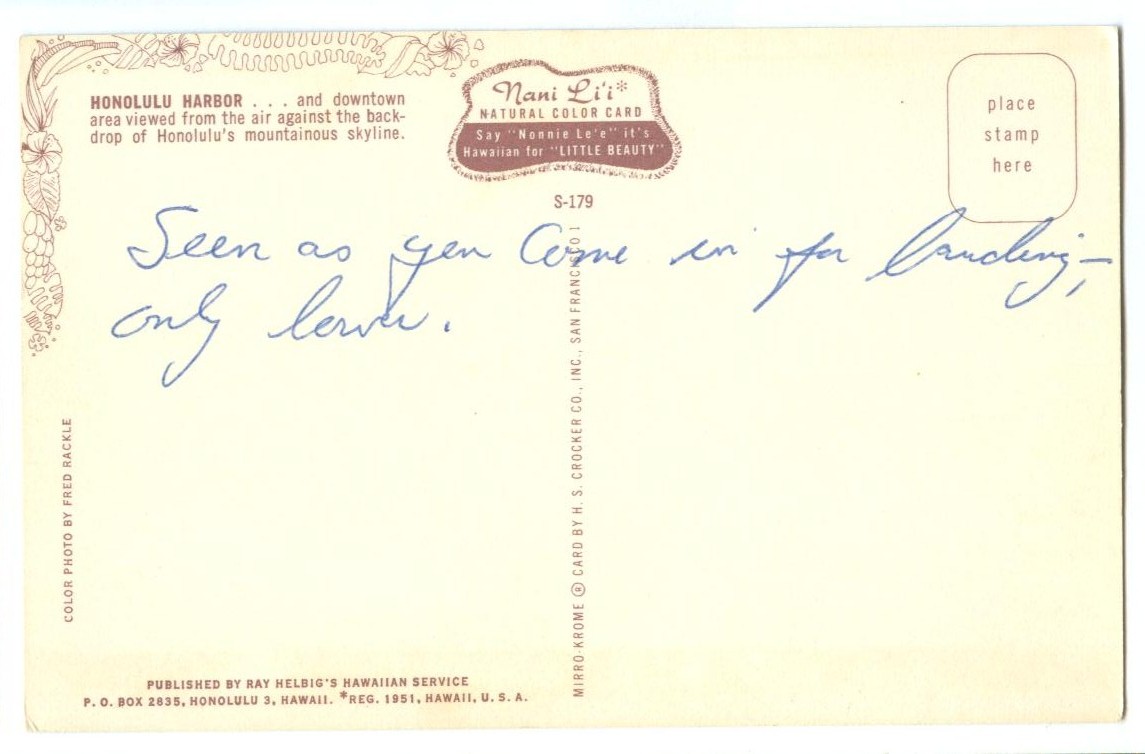 HONOLULU HARBOR . . . and downtown
area viewed from the air against the back-
drop of Honolulu's mountainous skyline.
Nani Li'i*
NATURAL COLOR CARD
Say "Nonnie Le'e" it's
Hawaiian for "LITTLE BEAUTY"
S-179
place
stamp
here
Seen as you Come in for landing—,
only lower.
COLOR PHOTO BY FRED RACKLE
MIRRO-KROME ® CARD BY H. S. CROCKER CO., INC., SAN FRANCISCO 1
PUBLISHED BY RAY HELBIG'S HAWAIIAN SERVICE
P. O. BOX 2835, HONOLULU 3, HAWAII. *REG. 1951, HAWAII, U. S. A.